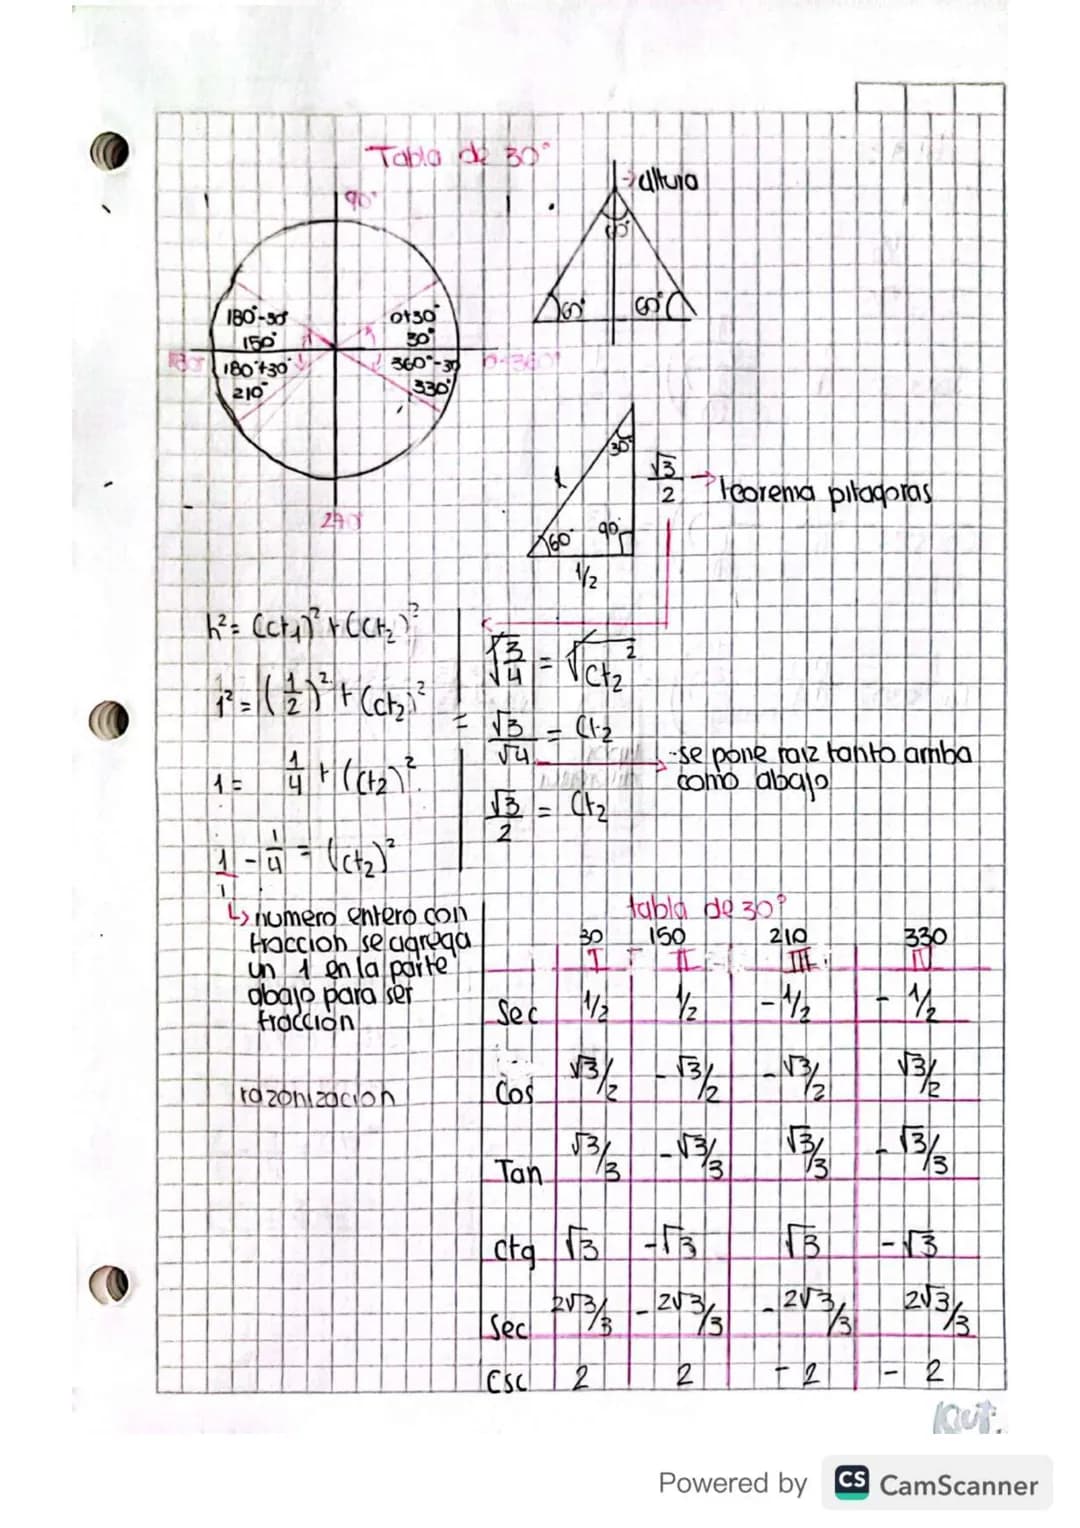 Tabla de 30°
90°
→altura
60°
60°
60°
180°-30°
150°
0+30°
30°
180°
0-360°
180°+30°
210°
360°-30
330°
270°
30°
1
√3/2 → teorema pitagoras
60°
90°
1/2
h²= (ct₁)² + (ct₂)²
1² = (1/2)² + (ct₂)²
1 = 1/4 + (ct₂)²
1/1 - 1/4 = (ct₂)²
↳ numero entero con
fraccion se agrega
un 1 en la parte
abajo para ser
fraccion
razonizacion
√3/4 = √ct₂²
= √3/√4 = Ct₂
→ -se pone raiz tanto arriba
como abajo
√3/2 = Ct₂
tabla de 30°
30 150 210 330
I II III IV
Sec 1/2 1/2 -1/2 - 1/2
Cos √3/2 -√3/2 -√3/2 √3/2
Tan √3/3 -√3/3 √3/3 -√3/3
ctg √3 -√3 √3 -√3
Sec 2√3/3 -2√3/3 -2√3/3 2√3/3
Csc 2 2 -2 -2
Powered by CS CamScanner